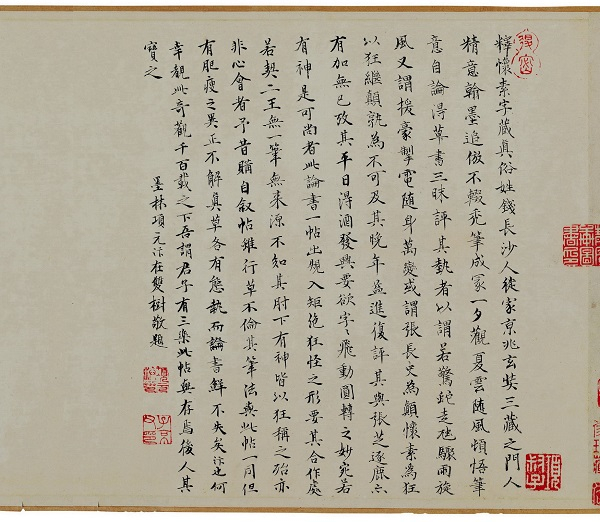 釋懷素字藏真俗姓錢長沙人徙家京兆玄奘三藏之門人
精意翰墨追倣不輟禿筆成冢一夕觀夏雲隨風頓悟筆
意自論得草書三昧評其執者以謂若驚蛇走虺驟雨旋
風又謂援豪掣電隨身萬變或謂張長史為顛懷素為狂
以狂繼顛孰為不可及其晚年益進復評其與張芝逐鹿亡
有加無已攷其平日得酒發興要欲字字飛動圓轉之妙宛若
有神是可尚者此論書一帖出規入矩絕狂怪之形要其合作處
若契二王無一筆無來源不知其肘下有神皆以狂稱之殆亦
非心會者予昔購自敘帖雖行草不倫其筆法與此帖一同但
有肥瘦之異正不解真草各有態執而論書鮮不失矣汴何
幸覩此奇觀千百載之下吾謂君子有三樂此帖與存焉後人其
寶之
墨林項元汴在雙樹敬題